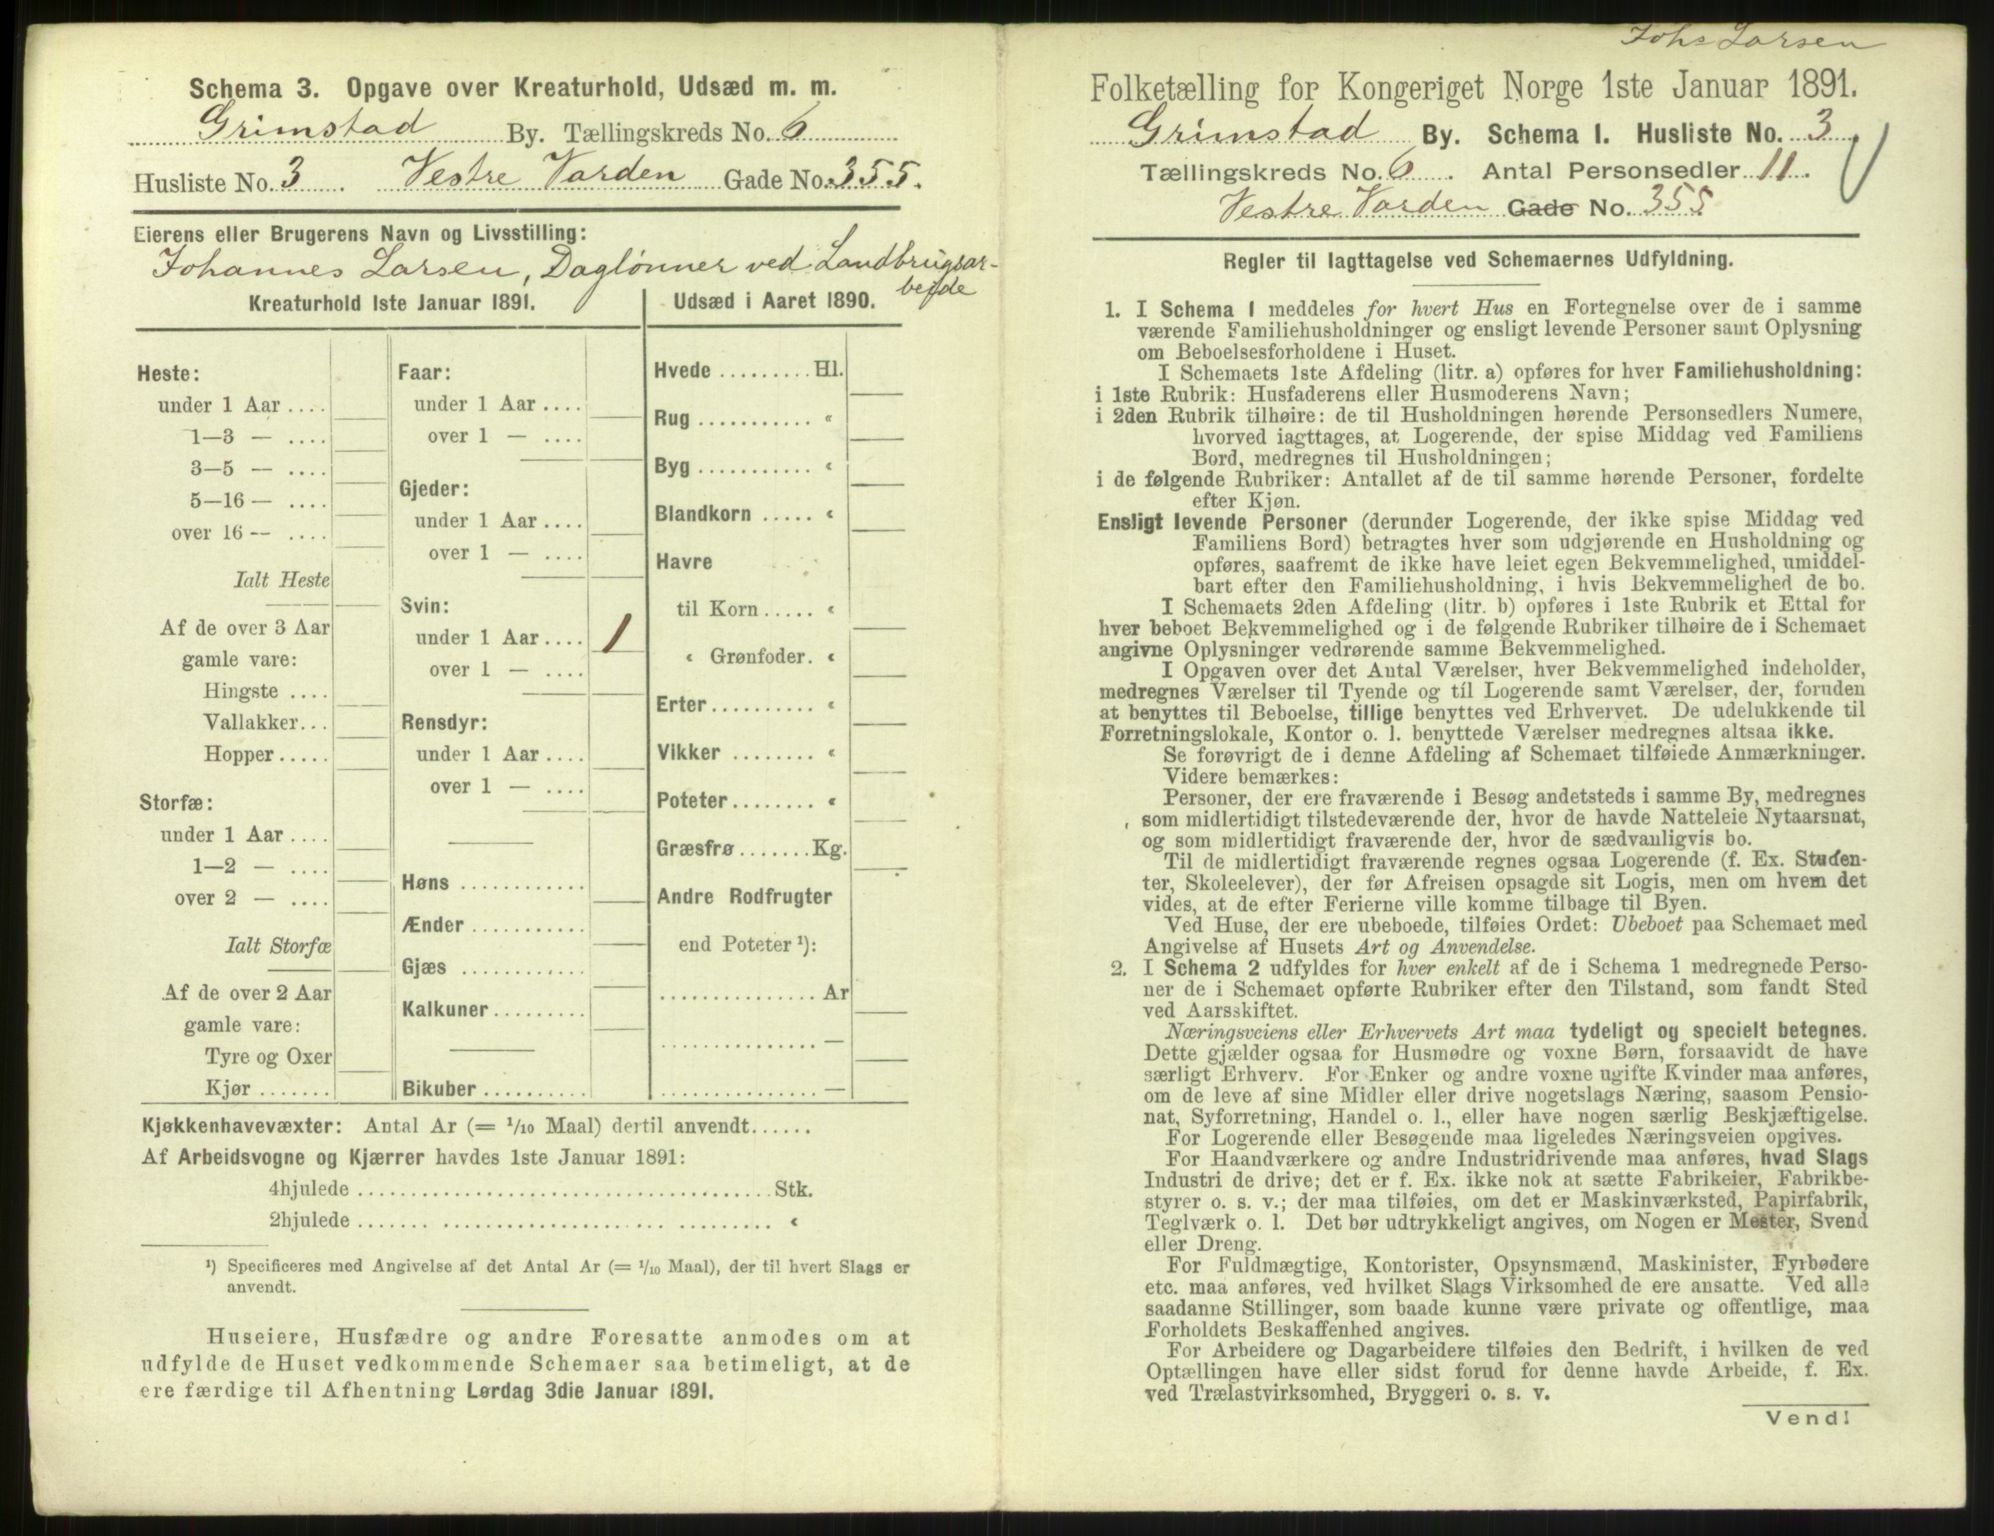 Schema 3. Opgave over Kreaturhold, Udsæd m. m.
Grimstad By. Tællingskreds No. 6
Husliste No. 3 Vestre Varden Gade No. 355.
Eierens eller Brugerens Navn og Livsstilling:
Johannes Larsen, Daglønner ved Landbrugsar-
beide
Kreaturhold 1ste Januar 1891.
Heste:
under 1 Aar ....
1—3 — ....
3—5 — ....
5—16 — ....
over 16 — ....
Ialt Heste
Af de over 3 Aar
gamle vare:
Hingste ....
Vallakker...
Hopper.....
Storfæ:
under 1 Aar ....
1—2 — ....
over 2 — ....
Ialt Storfæ
Af de over 2 Aar
gamle vare:
Tyre og Oxer
Kjør .......
Faar:
under 1 Aar ....
over 1 — ....
Gjeder:
under 1 Aar ....
over 1 — ....
Svin:
under 1 Aar .... 1
over 1 — ....
Rensdyr:
under 1 Aar ....
over 1 — ....
Høns ............
Ænder ...........
Gjæs ............
Kalkuner.........
Bikuber ..........
Udsæd i Aaret 1890.
Hvede ......... Hl.
Rug ........... "
Byg ........... "
Blandkorn ..... "
Havre
til Korn ..... "
" Grønfoder. "
Erter.......... "
Vikker ........ "
Poteter........ "
Græsfrø ....... Kg.
Andre Rodfrugter
end Poteter ¹):
............... Ar
............... —
............... —
Kjøkkenhavevæxter: Antal Ar (= 1/10 Maal) dertil anvendt......
Af Arbeidsvogne og Kjærrer havdes 1ste Januar 1891:
4hjulede ........................................ Stk.
2hjulede ........................................ "
¹) Specificeres med Angivelse af det Antal Ar (= 1/10 Maal), der til hvert Slags er
anvendt.
Huseiere, Husfædre og andre Foresatte anmodes om at
udfylde de Huset vedkommende Schemaer saa betimeligt, at de
ere færdige til Afhentning Lørdag 3die Januar 1891.
Johs Larsen
Folketælling for Kongeriget Norge 1ste Januar 1891.
Grimstad By. Schema 1. Husliste No. 3
Tællingskreds No. 6. Antal Personsedler 11.
Vestre Varden Gade No. 355
Regler til Iagttagelse ved Schemaernes Udfyldning.
1. I Schema 1 meddeles for hvert Hus en Fortegnelse over de i samme
værende Familiehusholdninger og ensligt levende Personer samt Oplysning
om Beboelsesforholdene i Huset.
I Schemaets 1ste Afdeling (litr. a) opføres for hver Familiehusholdning:
i 1ste Rubrik: Husfaderens eller Husmoderens Navn;
i 2den Rubrik tilhøire: de til Husholdningen hørende Personsedlers Numere,
hvorved iagttages, at Logerende, der spise Middag ved Familiens
Bord, medregnes til Husholdningen;
i de følgende Rubriker: Antallet af de til samme hørende Personer, fordelte
efter Kjøn.
Ensligt levende Personer (derunder Logerende, der ikke spise Middag ved
Familiens Bord) betragtes hver som udgjørende en Husholdning og
opføres, saafremt de ikke have leiet egen Bekvemmelighed, umiddel-
bart efter den Familiehusholdning, i hvis Bekvemmelighed de bo.
I Schemaets 2den Afdeling (litr. b) opføres i 1ste Rubrik et Ettal for
hver beboet Bekvemmelighed og i de følgende Rubriker tilhøire de i Schemaet
angivne Oplysninger vedrørende samme Bekvemmelighed.
I Opgaven over det Antal Værelser, hver Bekvemmelighed indeholder,
medregnes Værelser til Tyende og til Logerende samt Værelser, der, foruden
at benyttes til Beboelse, tillige benyttes ved Erhvervet. De udelukkende til
Forretningslokale, Kontor o. l. benyttede Værelser medregnes altsaa ikke.
Se forøvrigt de i denne Afdeling af Schemaet tilføiede Anmærkninger.
Videre bemærkes:
Personer, der ere fraværende i Besøg andetsteds i samme By, medregnes
som midlertidigt tilstedeværende der, hvor de havde Natteleie Nytaarsnat,
og som midlertidigt fraværende der, hvor de sædvanligvis bo.
Til de midlertidigt fraværende regnes ogsaa Logerende (f. Ex. Studen-
ter, Skoleelever), der før Afreisen opsagde sit Logis, men om hvem det
vides, at de efter Ferierne ville komme tilbage til Byen.
Ved Huse, der ere ubeboede, tilføies Ordet: Ubeboet paa Schemaet med
Angivelse af Husets Art og Anvendelse.
2. I Schema 2 udfyldes for hver enkelt af de i Schema 1 medregnede Perso-
ner de i Schemaet opførte Rubriker efter den Tilstand, som fandt Sted
ved Aarsskiftet.
Næringsveiens eller Erhvervets Art maa tydeligt og specielt betegnes.
Dette gjælder ogsaa for Husmødre og voxne Børn, forsaavidt de have
særligt Erhverv. For Enker og andre voxne ugifte Kvinder maa anføres,
om de leve af sine Midler eller drive nogetslags Næring, saasom Pensio-
nat, Syforretning, Handel o. l., eller have nogen særlig Beskjæftigelse.
For Logerende eller Besøgende maa ligeledes Næringsveien opgives.
For Haandværkere og andre Industridrivende maa anføres, hvad Slags
Industri de drive; det er f. Ex. ikke nok at sætte Fabrikeier, Fabrikbe-
styrer o. s. v.; der maa tilføies, om det er Maskinværksted, Papirfabrik,
Teglværk o. l. Det bør udtrykkeligt angives, om Nogen er Mester, Svend
eller Dreng.
For Fuldmægtige, Kontorister, Opsynsmænd, Maskinister, Fyrbødere
etc. maa anføres, ved hvilket Slags Virksomhed de ere ansatte. Ved alle
saadanne Stillinger, som baade kunne være private og offentlige, maa
Forholdets Beskaffenhed angives.
For Arbeidere og Dagarbeidere tilføies den Bedrift, i hvilken de ved
Optællingen have eller sidst forud for denne havde Arbeide, f. Ex.
ved Trælastvirksomhed, Bryggeri o. s. v.
Vend!